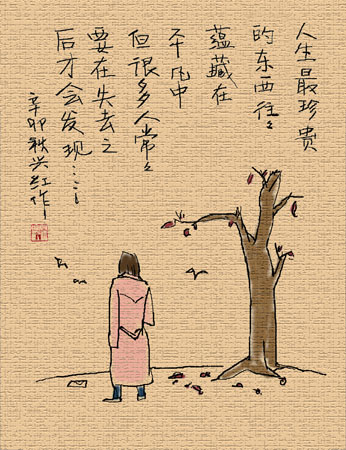 人生最珍贵
的东西往々
蕴藏在
平凡中
但很多人常々
要在失去之
后才会发现……
辛卯秋兴红作